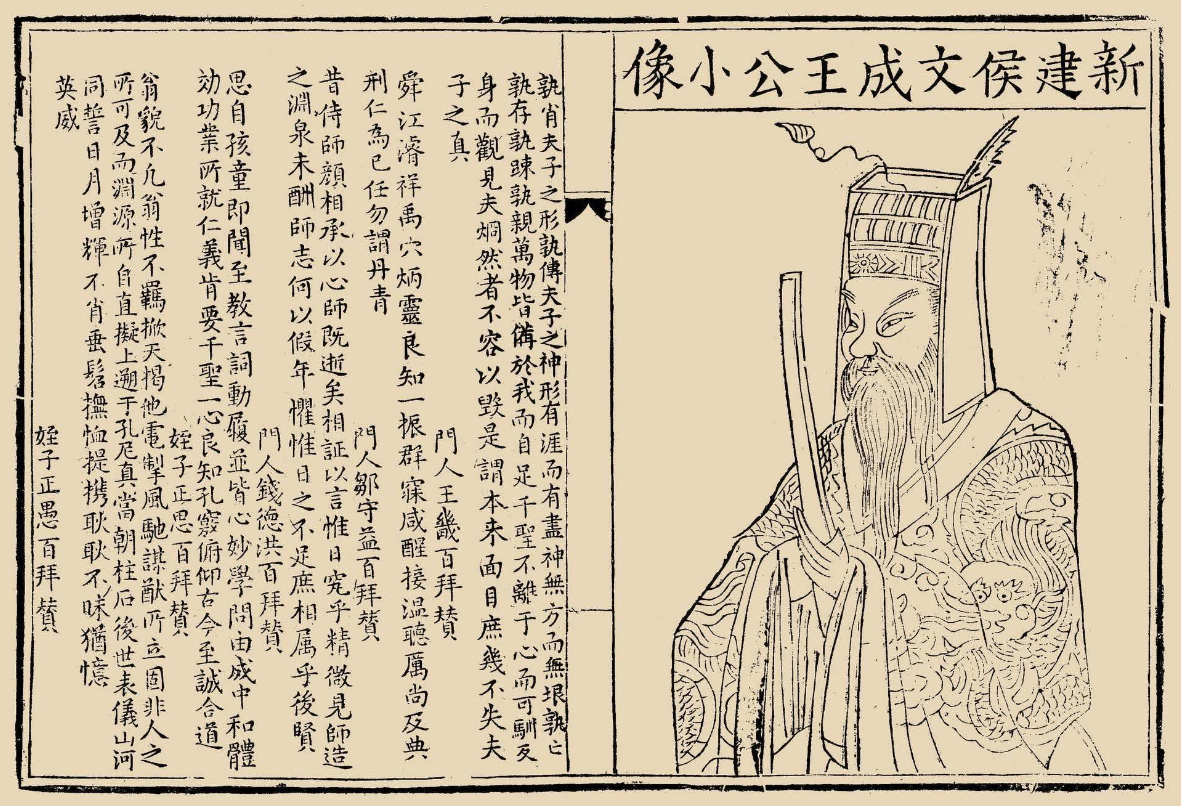 新建侯文成王公小像
孰肖夫子之形孰傳夫子之神形有涯而有盡神無方而無垠孰亡
孰存孰踈孰親萬物皆備於我而自足千聖不離于心而可酬反
身而觀見夫烱然者不容以毁是謂本来面目庶幾不失夫
子之真
門人王畿百拜贊
舜江濬祥禹穴炳靈良知一振群寐咸醒接温聽厲尚及典
刑仁為已任勿謂丹青
門人鄒守益百拜贊
昔侍師顔相承以心師既逝矣相証以言惟日究乎精微見師造
之淵泉未酬師志何以假年懼惟日之不足庶相属乎後賢
門人錢德洪百拜贊
思自孩童即聞至教言詞動履並皆心妙學問由成中和體
効功業所就仁義肯要千聖一心良知孔竅俯仰古今至誠合道
姪子正思百拜贊
翁貌不凡翁性不羈掀天揭地電掣風馳謀猷所立固非人之
所可及而淵源所自直擬上遡于孔尼真當朝柱石後世表儀山河
同誓日月增輝不肖垂髫撫恤提携耿耿不昧猶憶
英威
姪子正愚百拜贊